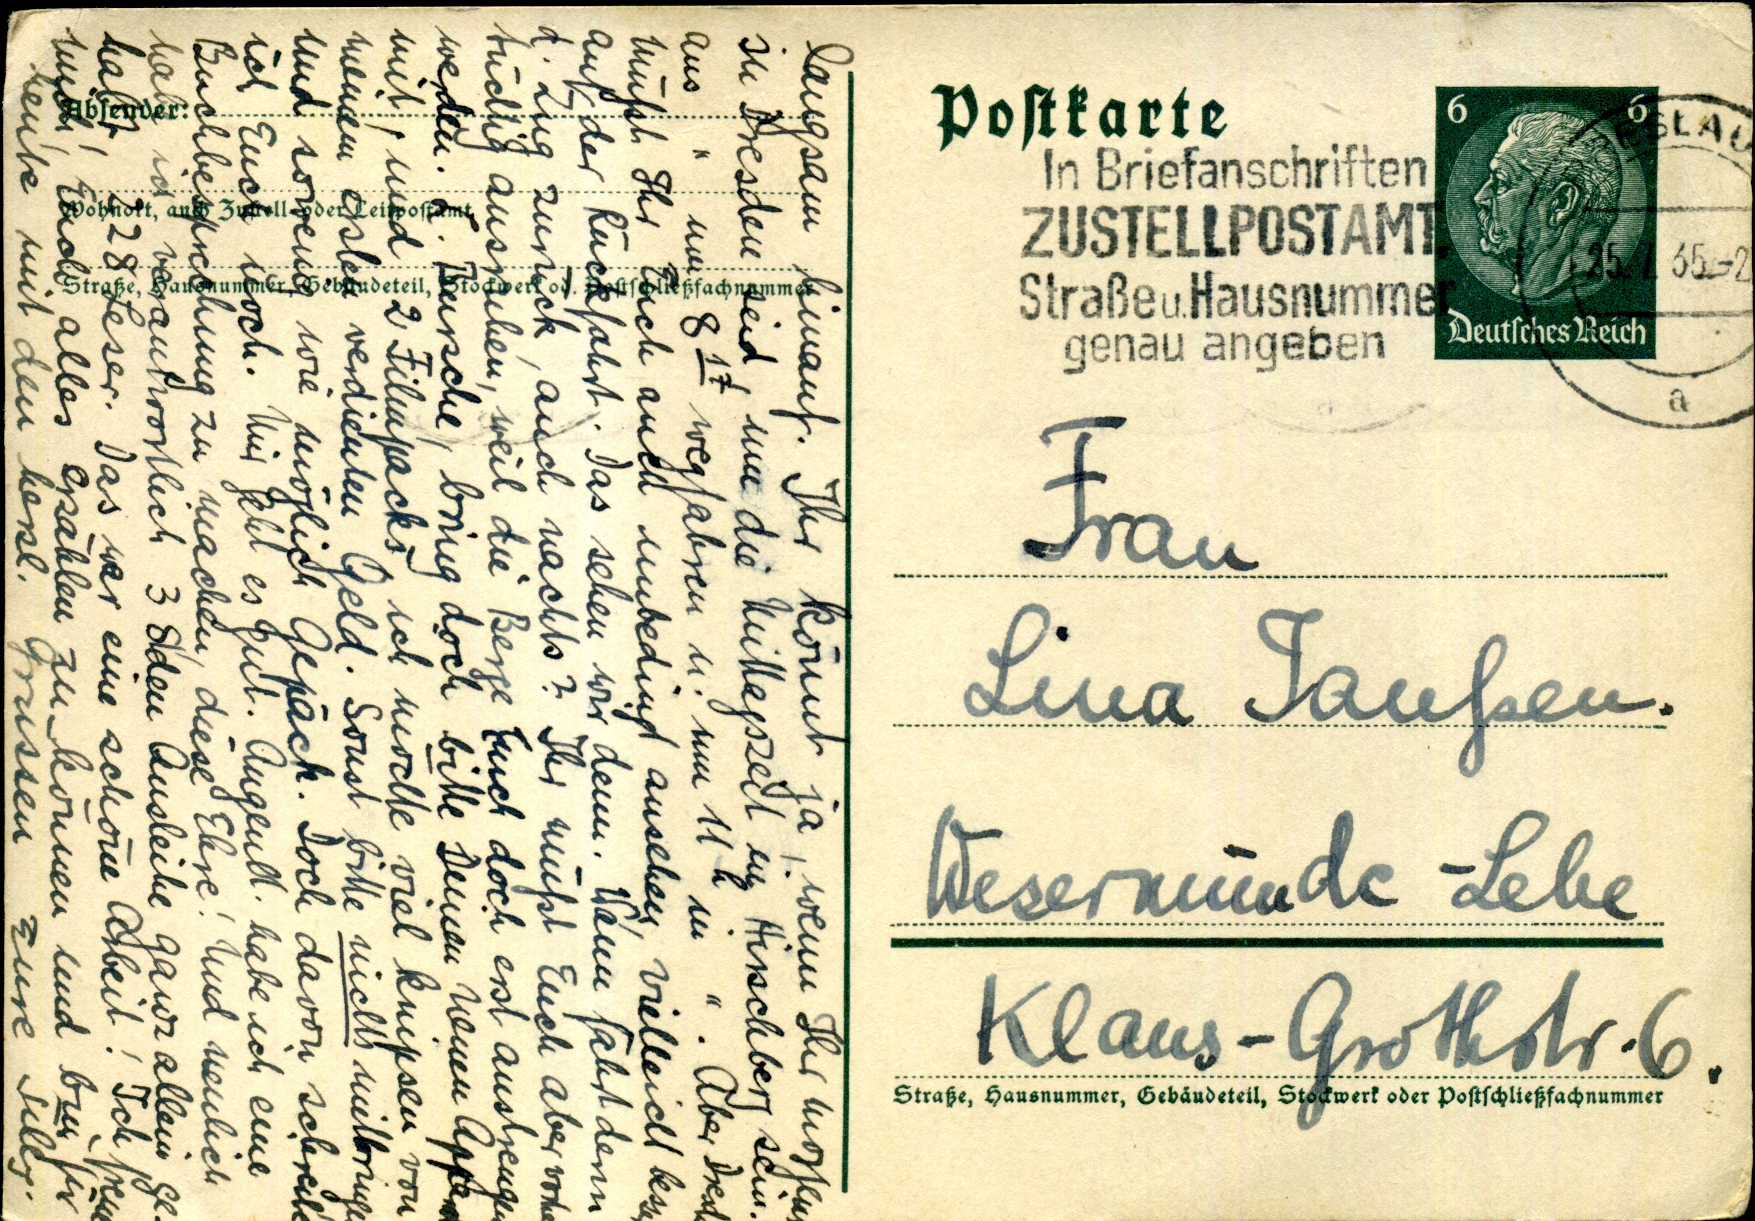 Postkarte
6 6
Deutsches Reich
BRESLAU
25. 35.-2
a
In Briefanschriften
ZUSTELLPOSTAMT.
Straße u. Hausnummer
genau angeben
Frau
Lina Janßen.
Wesermünde-Lehe
Klaus-Grothstr. 6.
Straße, Hausnummer, Gebäudeteil, Stockwerk oder Postschließfachnummer
Absender:
Wohnort, auch Zustell- oder Leitpostamt
Straße, Hausnummer, Gebäudeteil, Stockwerk od. Postschließfachnummer
langsam hinauf. Ihr könnt ja, wenn Ihr morgens
in Dresden seid, um die Mittagszeit in Hirschberg sein.
aus " um 8 17 wegfahren u. um 11 h in ". Aber Dresd
müßt Ihr Euch auch unbedingt ansehen, vielleicht besser
auf der Rückfahrt. Das sehen wir dann. Wann fährt denn
d. Zug zurück, auch nachts? Ihr müßt Euch aber vorher
tüchtig ausruhen, weil die Berge Euch doch erst anstrengen
werden. L. Bursche, bring doch bitte Deinen kleinen Apparat
mit, und 2 Filmpacks, ich möchte viel knipsen von
meinem ersten verdienten Geld. Sonst bitte nichts mitbringen
und sowenig wie möglich Gepäck. Doch davon schreibe
ich Euch noch. Mir geht es gut. Augenbl. habe ich eine
Buchbesprechung zu machen, diese Ehre! Und neulich
hab ich verantwortlich 3 Stden Ausleihe ganz allein ge-
habt, 128 Leser. Das war eine schöne Arbeit! Ich freue
mich, Euch alles erzählen zu können und bin für
heute mit den herzl. Grüssen Eure